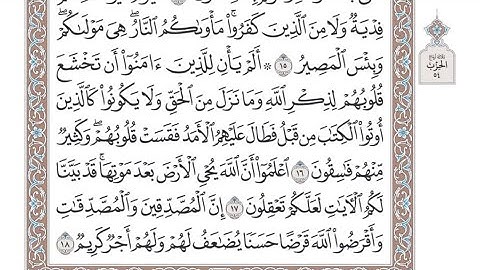 فِدْيَةٌ وَلَا مِنَ ٱلَّذِينَ كَفَرُوا۟ۚ مَأْوَىٰكُمُ ٱلنَّارُۖ هِىَ مَوْلَىٰكُمْۖ
وَبِئْسَ ٱلْمَصِيرُ ١٥ ۞ أَلَمْ يَأْنِ لِلَّذِينَ ءَامَنُوٓا۟ أَن تَخْشَعَ
قُلُوبُهُمْ لِذِكْرِ ٱللَّهِ وَمَا نَزَلَ مِنَ ٱلْحَقِّ وَلَا يَكُونُوا۟ كَٱلَّذِينَ
أُوتُوا۟ ٱلْكِتَٰبَ مِن قَبْلُ فَطَالَ عَلَيْهِمُ ٱلْأَمَدُ فَقَسَتْ قُلُوبُهُمْۖ وَكَثِيرٌ
مِّنْهُمْ فَٰسِقُونَ ١٦ ٱعْلَمُوٓا۟ أَنَّ ٱللَّهَ يُحْىِ ٱلْأَرْضَ بَعْدَ مَوْتِهَاۚ قَدْ بَيَّنَّا
لَكُمُ ٱلْءَايَٰتِ لَعَلَّكُمْ تَعْقِلُونَ ١٧ إِنَّ ٱلْمُصَّدِّقِينَ وَٱلْمُصَّدِّقَٰتِ
وَأَقْرَضُوا۟ ٱللَّهَ قَرْضًا حَسَنًا يُضَٰعَفُ لَهُمْ وَلَهُمْ أَجْرٌ كَرِيمٌ ١٨
الحِزْب
٥٤